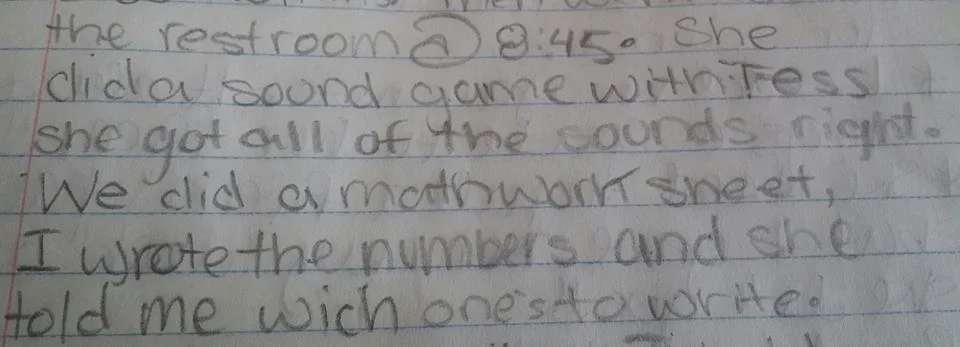 the restroom @ 8:45. She
did a sound game with Tess
she got all of the sounds right.
We did a math work sheet,
I wrote the numbers and she
told me wich one's to write.